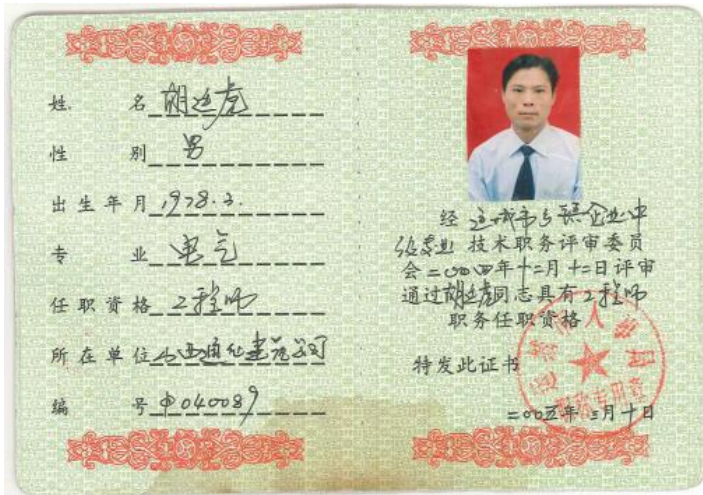 姓 名 胡延虎
性 别 男
出生年月 1978.3.
专 业 电气
任职资格 工程师
所在单位 山西通仁建筑公司
编 号 中040089
经 运城市乡镇企业中
级专业 技术职务评审委员
会二〇〇四年十二月十二日评审
通过胡延虎同志具有工程师
职务任职资格
特发此证书
二〇〇五年三月十日
职称专用章